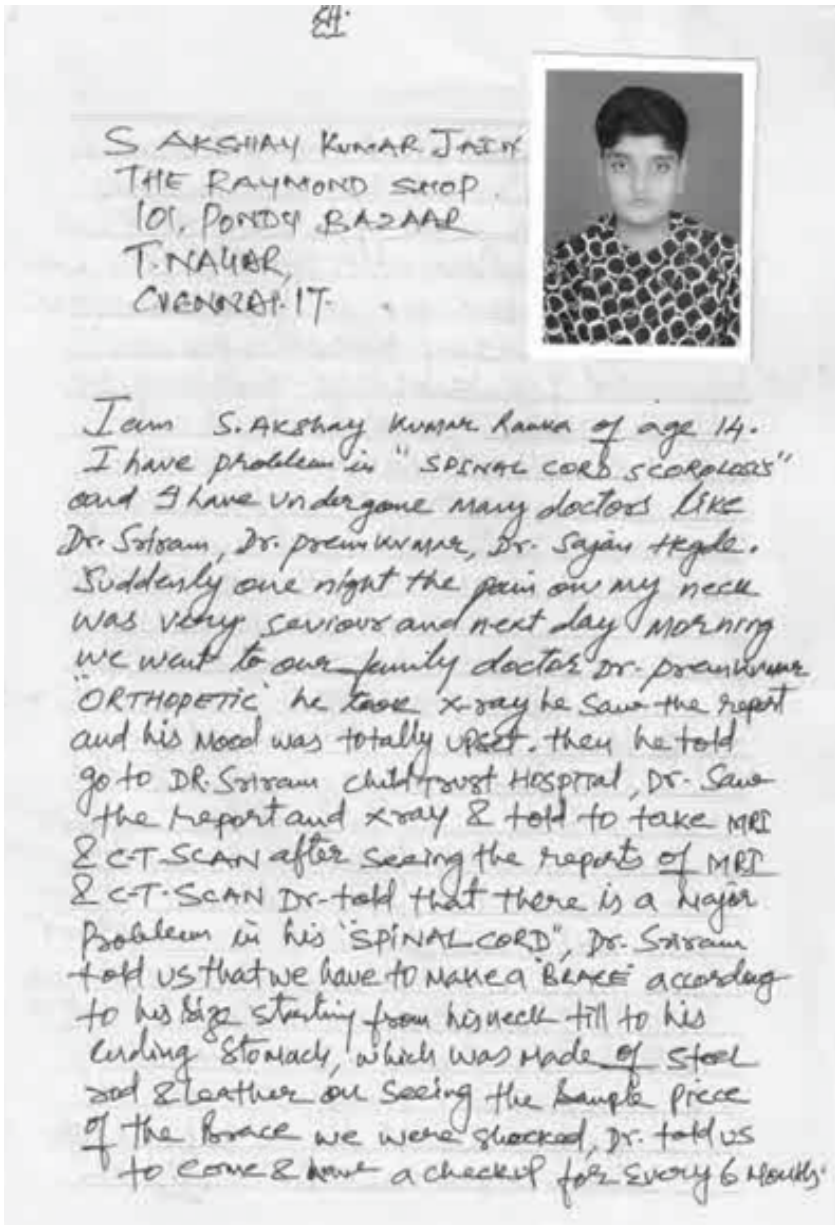 श्री.
S. AKSHAY KUMAR JAIN
THE RAYMOND SHOP.
101, PONDY BAZAAR
T. NAGAR,
CHENNAI-17.
I am S. Akshay Kumar Ranka of age 14.
I have problem in "SPINAL CORD SCOROLOSIS"
and I have undergone many doctors like
Dr. Sriram, Dr. premkumar, Dr. Sajan Hegde.
Suddenly one night the pain on my neck
was very seviour and next day morning
we went to our family doctor Dr. premkumar
"ORTHOPETIC" he took x-ray he saw the report
and his mood was totally upset. then he told
go to DR. Sriram child trust HOSPITAL, Dr. Saw
the report and xray & told to take MRI
& C-T SCAN after seeing the reports of MRI
& C-T-SCAN Dr-told that there is a Major
Problem in his "SPINAL CORD", Dr. Sriram
told us that we have to make a "BRACE" according
to his size starting from his neck till to his
ending Stomach, which was made of Steel
rod & leather on Seeing the Sample piece
of the Brace we were shocked, Dr. told us
to come & have a checkup for every 6 months.